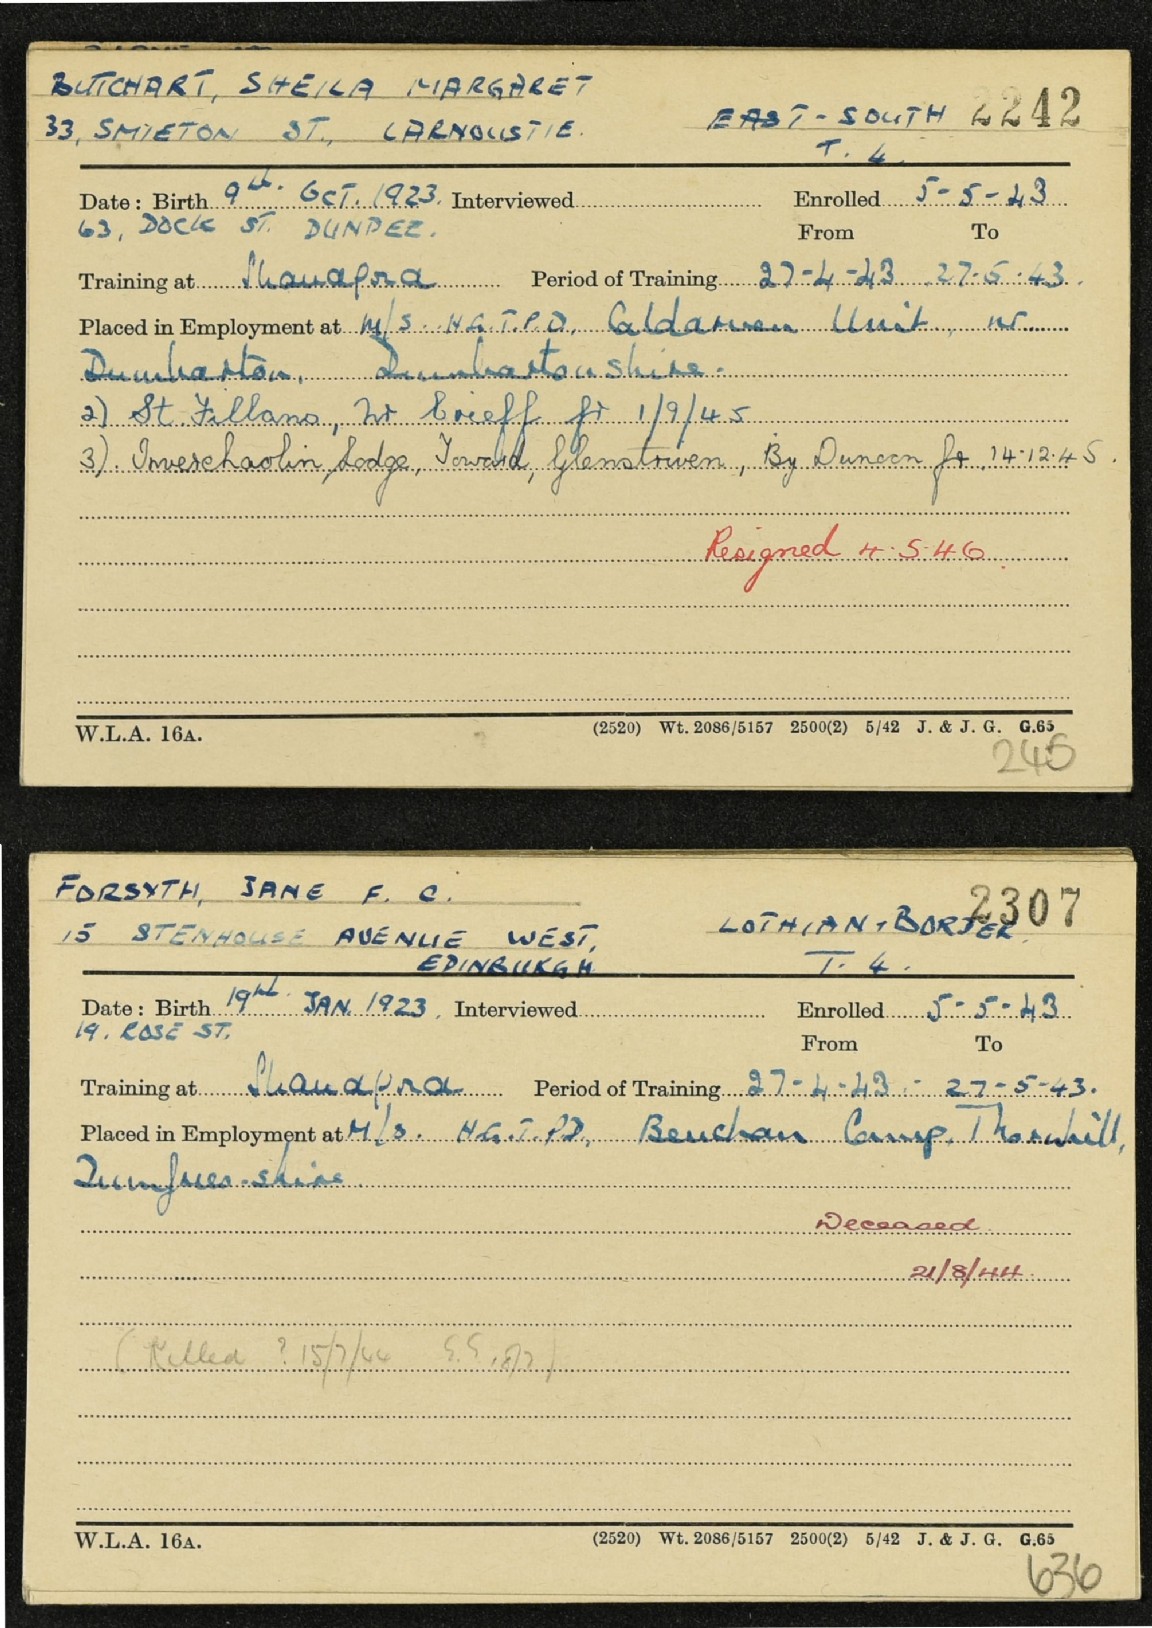 BUTCHART, SHEILA MARGARET
33, SMIETON ST., CARNOUSTIE. EAST-SOUTH 2242
T. 4.
Date: Birth 9th. OCT. 1923. Interviewed Enrolled 5-5-43
63, DOCK ST. DUNDEE. From To
Training at Shandford Period of Training 27-4-43 27-5-43.
Placed in Employment at M/S. H.G.T.P.D. Caldarven Unit, nr.
Dumbarton, Dumbartonshire.
2) St. Fillans, Nr Crieff fr 1/9/45
3). Inverchaolin Lodge, Toward, Glenstriven, By Dunoon fr. 14.12.45.
Resigned 4.5.46.
W.L.A. 16A. (2520) Wt. 2086/5157 2500(2) 5/42 J. & J. G. G.65
245
FORSYTH, JANE F. C. 2307
15 STENHOUSE AVENUE WEST, LOTHIAN & BORDER
EDINBURGH T. 4.
Date: Birth 19th. JAN. 1923. Interviewed Enrolled 5-5-43
19. ROSE ST. From To
Training at Shandford Period of Training 27-4-43.- 27-5-43.
Placed in Employment at M/S. H.G.T.P.D., Benchan Camp, Thornhill,
Dumfries-shire.
Deceased
21/8/44.
(Killed ? 15/7/44
W.L.A. 16A. (2520) Wt. 2086/5157 2500(2) 5/42 J. & J. G. G.65
636